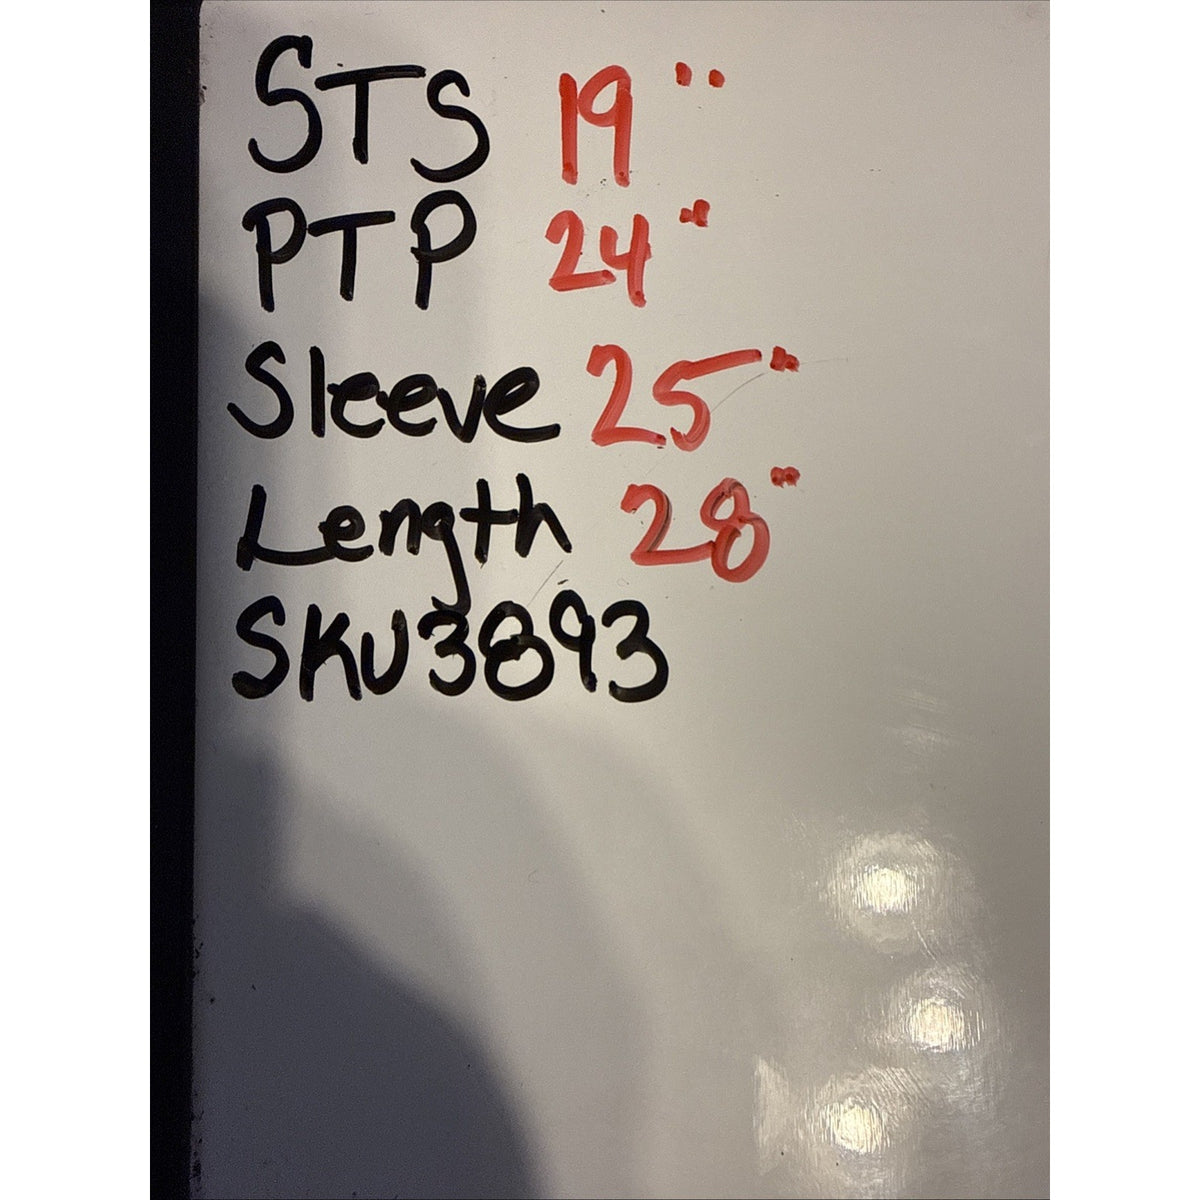 STS 19"
PTP 24"
Sleeve 25"
Length 28"
SKU3893